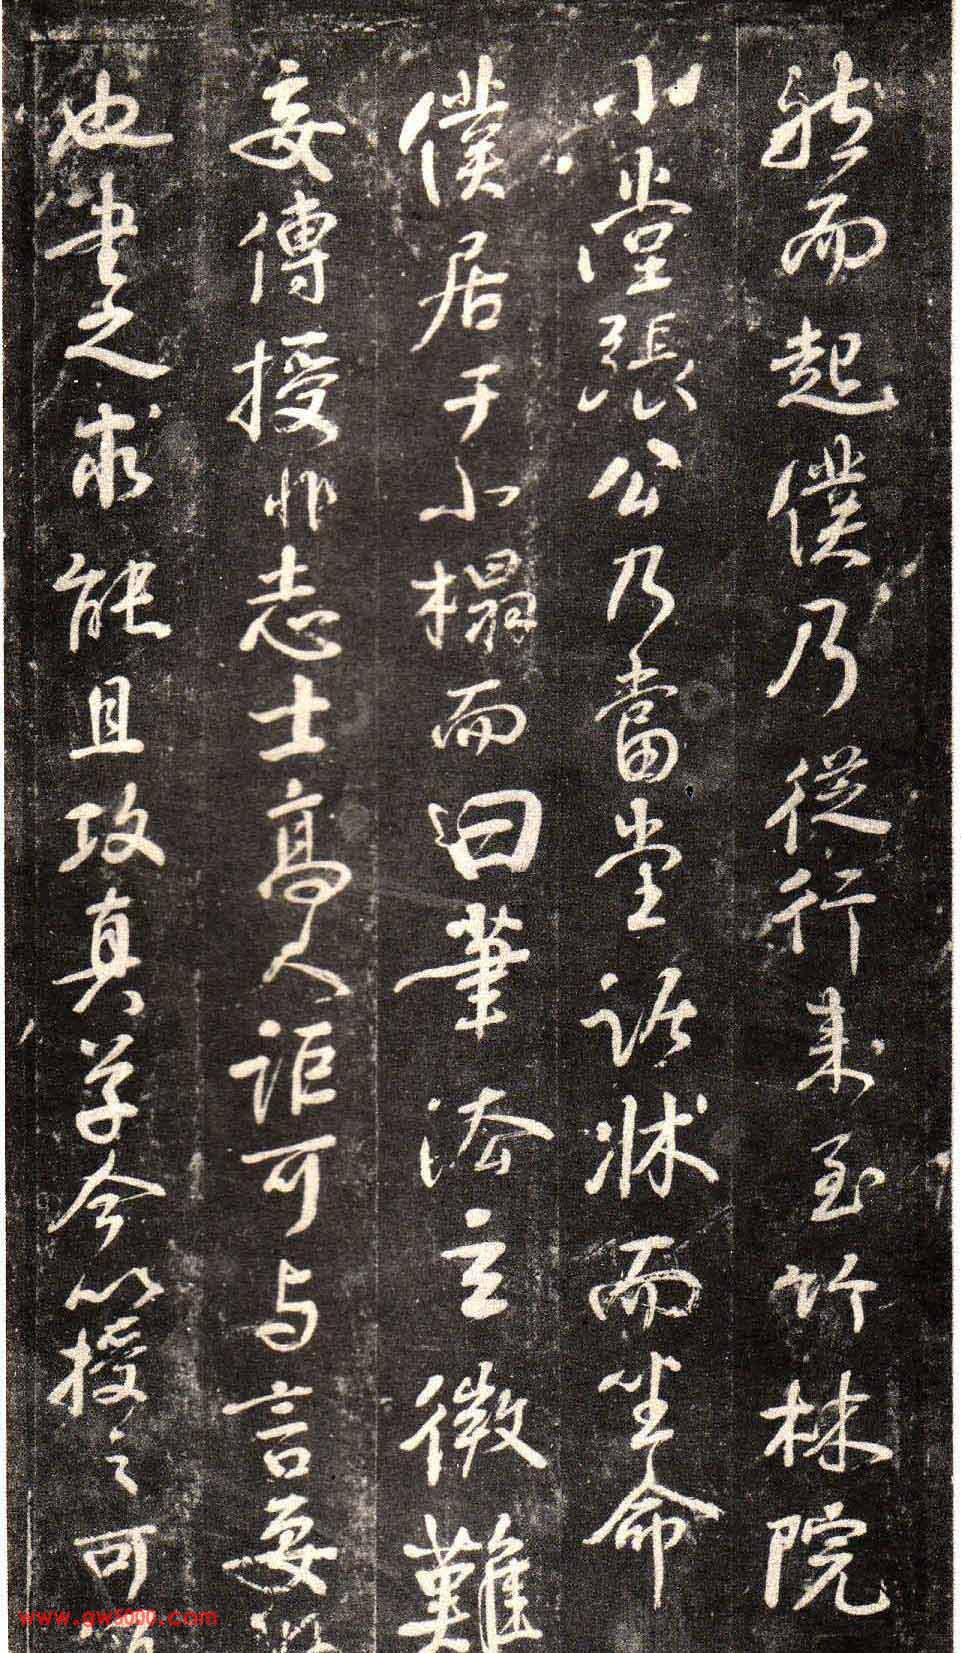 然而起僕乃從行来至竹林院
小堂張公乃當堂踞牀而坐命
僕居于小榻而曰筆法玄微難
妄傳授非志士高人詎可与言要
也書之求能且攻真草今以授之可
www.gw5000.com